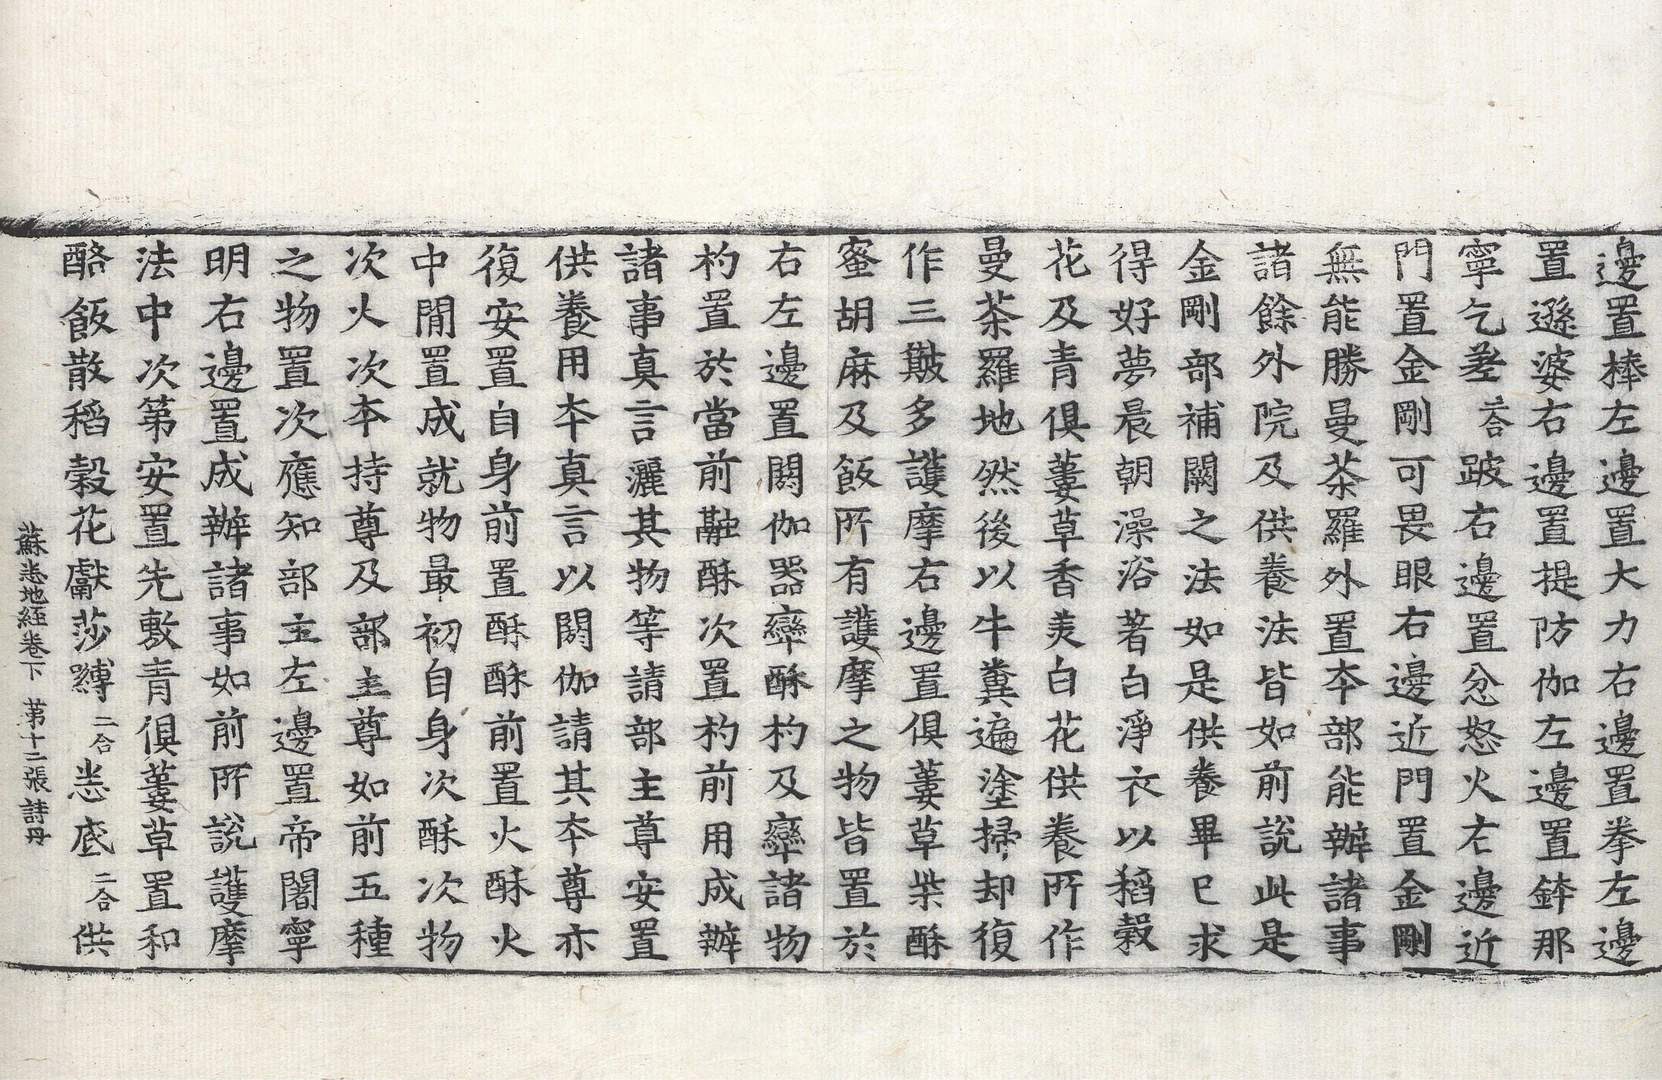 邊置棒左邊置大力右邊置拳左邊
置遜婆右邊置提防伽左邊置鉢那
寧乞差二合跛右邊置忿怒火右邊近
門置金剛可畏眼右邊近門置金剛
無能勝曼茶羅外置本部能辦諸事
諸餘外院及供養法皆如前說此是
金剛部補闕之法如是供養畢已求
得好夢晨朝澡浴著白淨衣以稻穀
花及青俱蔞草香美白花供養所作
曼茶羅地然後以牛糞遍塗掃却復
作三簸多護摩右邊置俱蔞草柴酥
蜜胡麻及飯所有護摩之物皆置於
右左邊置閼伽器巒酥杓及巒諸物
杓置於當前融酥次置杓前用成辦
諸事真言灑其物等請部主尊安置
供養用本真言以閼伽請其本尊亦
復安置自身前置酥酥前置火酥火
中間置成就物最初自身次酥次物
次火次本持尊及部主尊如前五種
之物置次應知部主左邊置帝闍寧
明右邊置成辦諸事如前所說護摩
法中次第安置先敷青俱蔞草置和
酪飯散稻穀花獻莎嚩二合悉底二合供
蘇悉地經卷下　第十二張　詩母